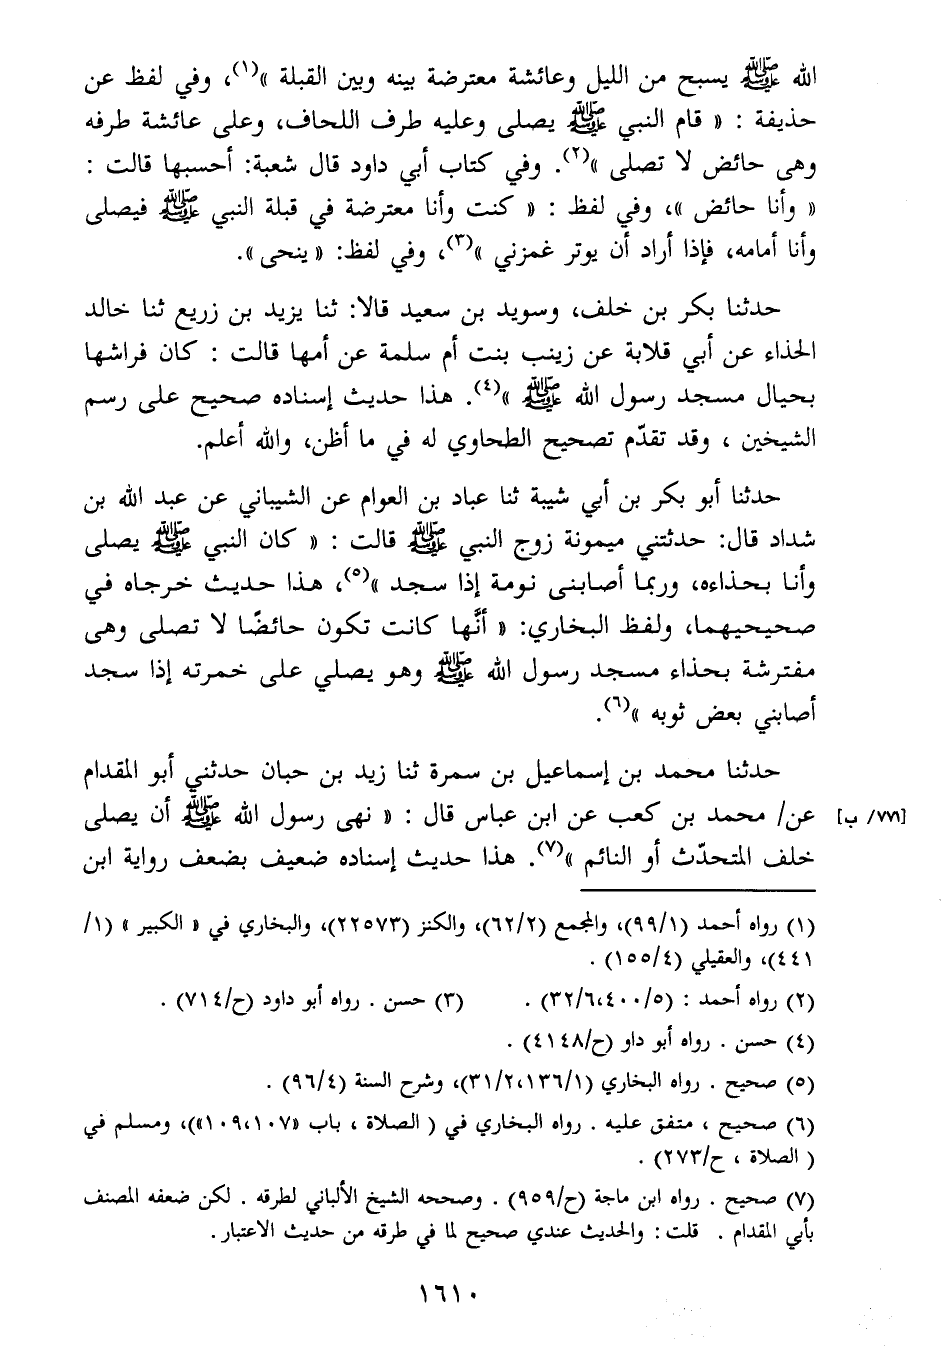 الله ﷺ يسبح من الليل وعائشة معترضة بينه وبين القبلة »(١)، وفي لفظ عن
حذيفة : « قام النبي ﷺ يصلى وعليه طرف اللحاف، وعلى عائشة طرفه
وهى حائض لا تصلى »(٢). وفي كتاب أبي داود قال شعبة: أحسبها قالت :
« وأنا حائض »، وفي لفظ : « كنت وأنا معترضة في قبلة النبي ﷺ فيصلى
وأنا أمامه، فإذا أراد أن يوتر غمزني »(٣)، وفي لفظ: « ينحى».
حدثنا بكر بن خلف، وسويد بن سعيد قالا: ثنا يزيد بن زريع ثنا خالد
الحذاء عن أبي قلابة عن زينب بنت أم سلمة عن أمها قالت : كان فراشها
بحيال مسجد رسول الله ﷺ »(٤). هذا حديث إسناده صحيح على رسم
الشيخين ، وقد تقدّم تصحيح الطحاوي له في ما أظن، والله أعلم.
حدثنا أبو بكر بن أبي شيبة ثنا عباد بن العوام عن الشيباني عن عبد الله بن
شداد قال: حدثتني ميمونة زوج النبي ﷺ قالت : « كان النبي ﷺ يصلى
وأنا بحذاءه، وربما أصابنى نومة إذا سجد »(٥)، هذا حديث خرجاه في
صحيحيهما، ولفظ البخاري: « أنَّها كانت تكون حائضًا لا تصلى وهى
مفترشة بحذاء مسجد رسول الله ﷺ وهو يصلي على خمرته إذا سجد
أصابني بعض ثوبه »(٦).
حدثنا محمد بن إسماعيل بن سمرة ثنا زيد بن حبان حدثني أبو المقدام
عن/ محمد بن كعب عن ابن عباس قال : « نهى رسول الله ﷺ أن يصلى [٧٧١/ ب]
خلف المتحدّث أو النائم »(٧). هذا حديث إسناده ضعيف بضعف رواية ابن
(١) رواه أحمد (٩٩/١)، والمجمع (٦٢/٢)، والكنز (٢٢٥٧٣)، والبخاري في « الكبير » (١/
٤٤١)، والعقيلي (١٥٥/٤) .
(٢) رواه أحمد : (٣٢/٦،٤٠٠/٥) . (٣) حسن . رواه أبو داود (ح/٧١٤) .
(٤) حسن . رواه أبو داو (ح/٤١٤٨) .
(٥) صحيح . رواه البخاري (٣١/٢،١٣٦/١)، وشرح السنة (٩٦/٤) .
(٦) صحيح ، متفق عليه . رواه البخاري في ( الصلاة ، باب «١٠٩،١٠٧»)، ومسلم في
( الصلاة ، ح/٢٧٣) .
(٧) صحيح . رواه ابن ماجة (ح/٩٥٩) . وصححه الشيخ الألباني لطرقه . لكن ضعفه المصنف
بأبي المقدام . قلت : والحديث عندي صحيح لما في طرقه من حديث الاعتبار .
١٦١٠